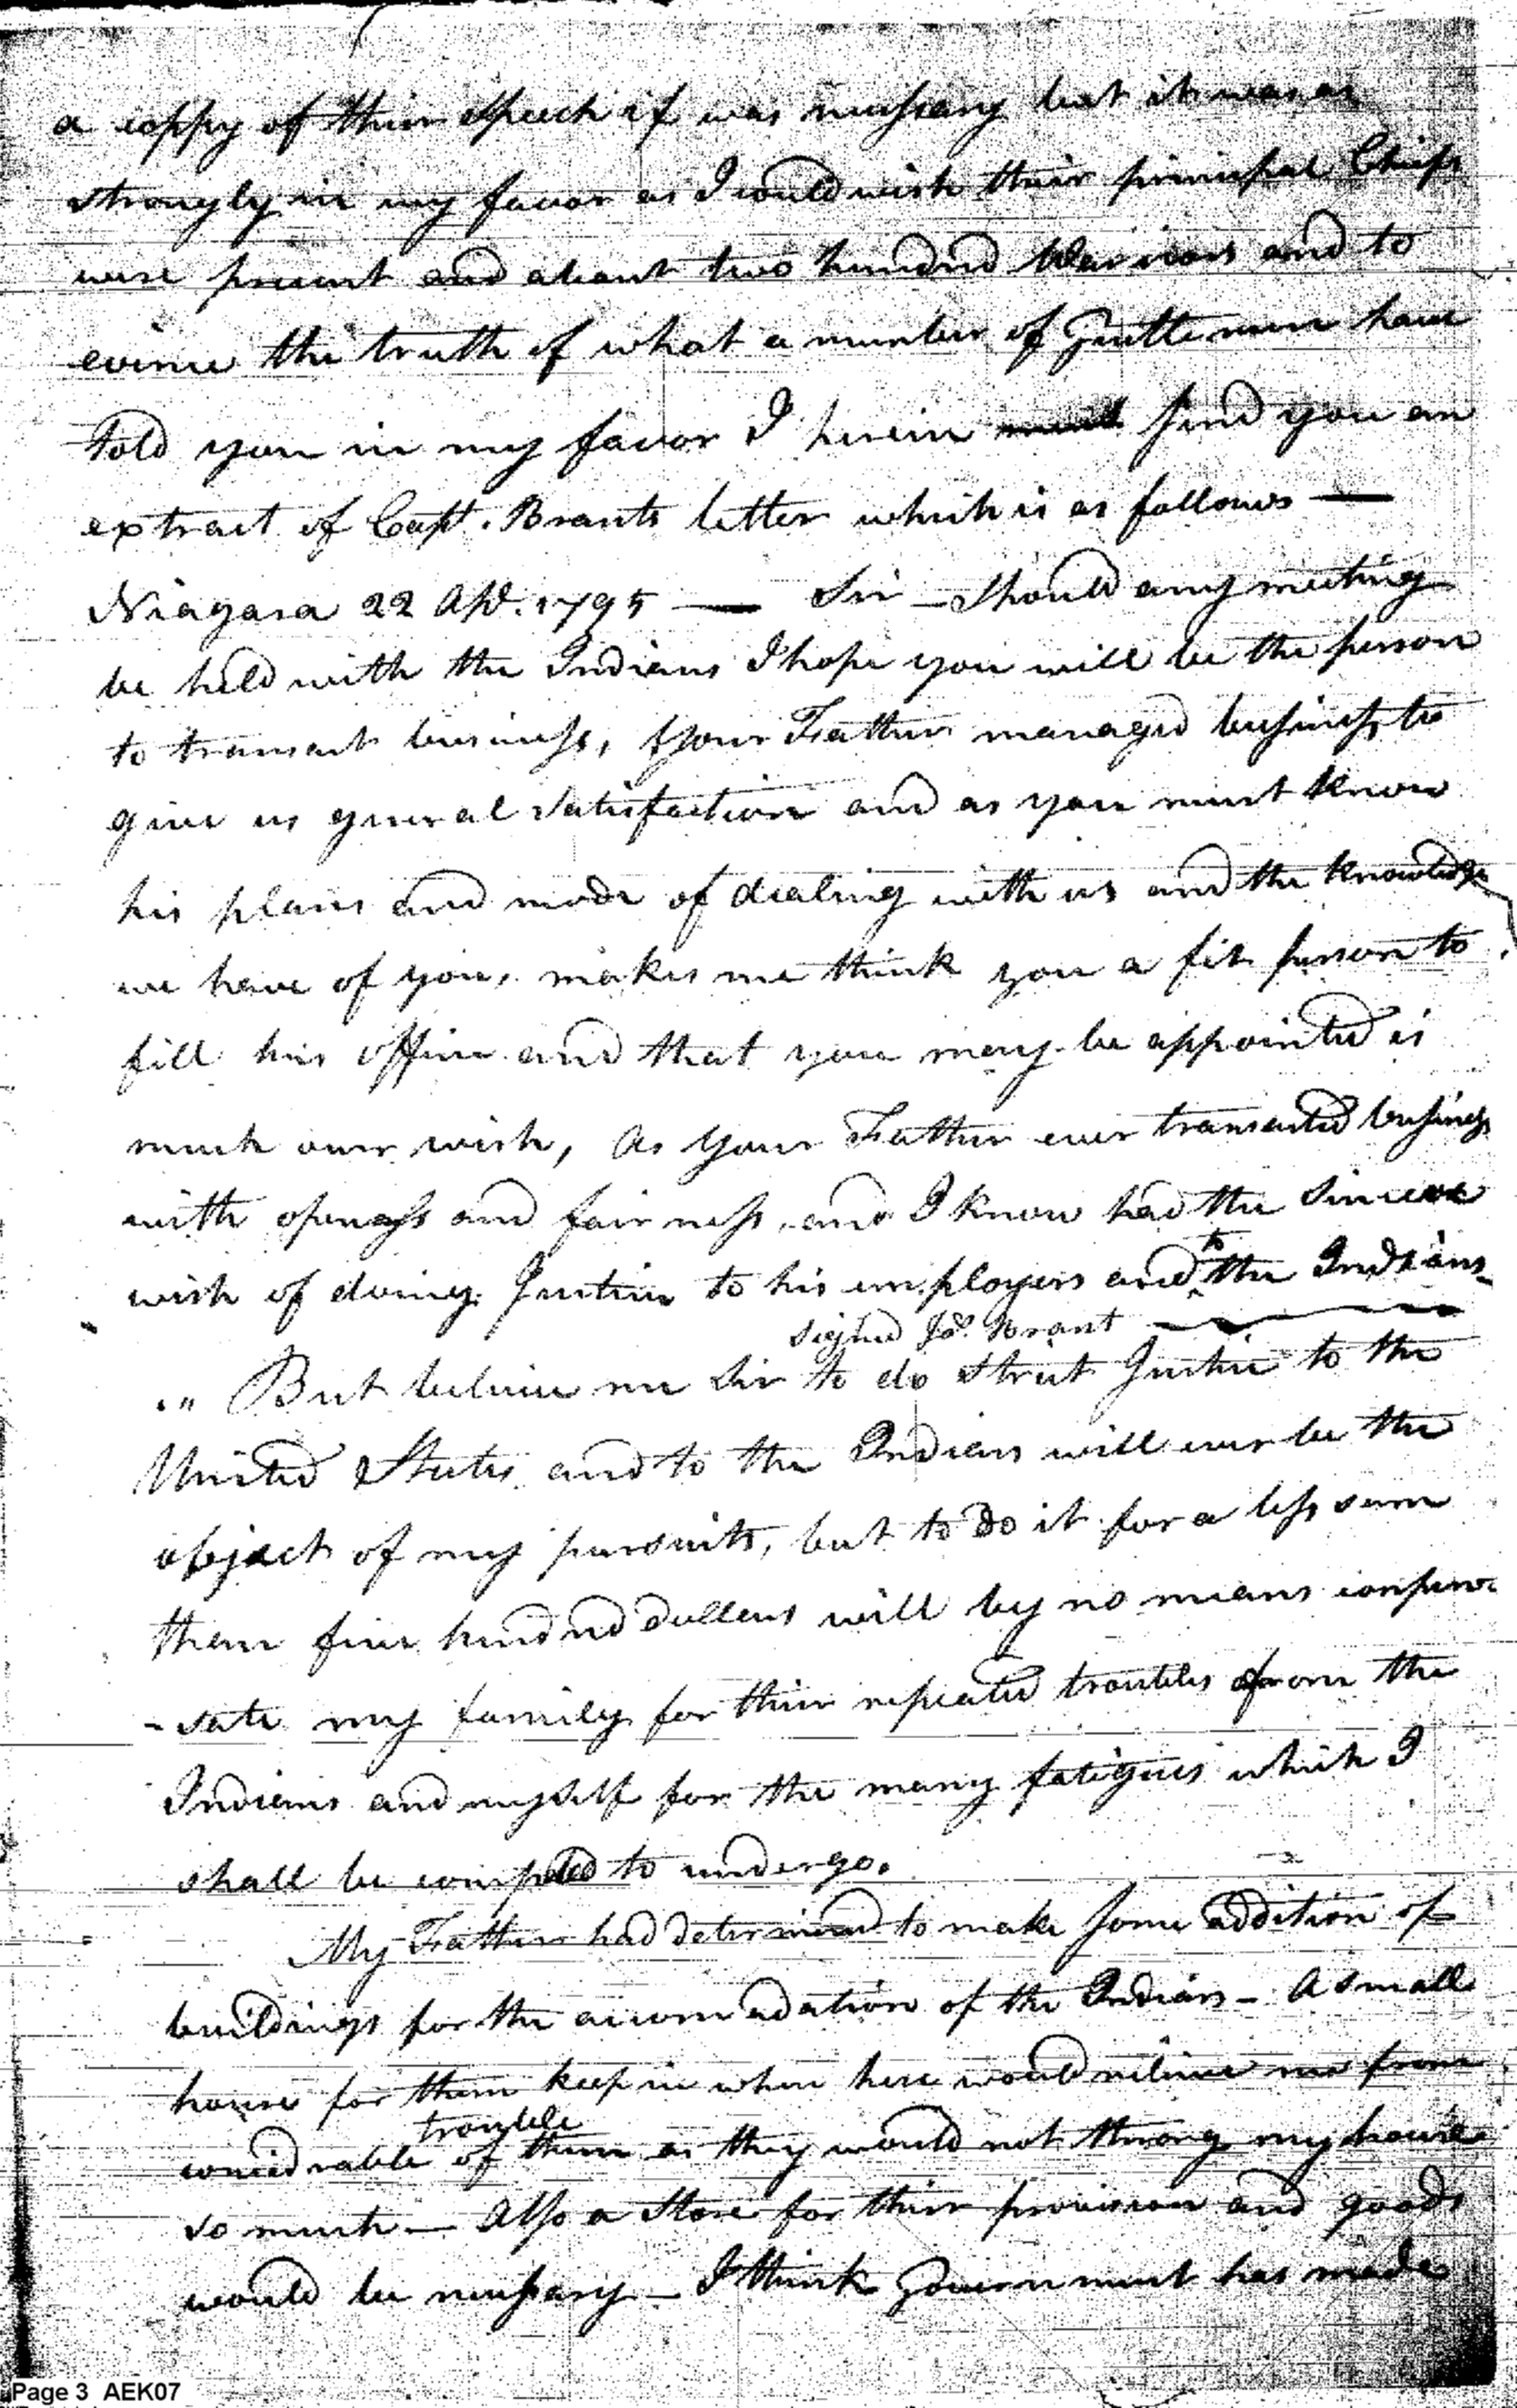 a coppy of their speech if was necessary but it was as
strongly in my favor as I could wish their principal Chiefs
were present and about two hundred Warriors and to
evince the truth of what a number of Gentlemen have
told you in my favor I herein send you an
extract of Capt. Brants letter which is as follows —
Niagara 22 Apl. 1795 — Sir — Should any meeting
be held with the Indians I hope you will be the person
to transact business, your Father managed business to
give us general satisfaction and as you must know
his plans and mode of dealing with us and the knowledge
we have of you, makes me think you a fit person to
fill his office and that you may be appointed is
much our wish, As your Father ever transacted business
with openness and fairness, and I know had the sincere
wish of doing Justice to his employers and to the Indians
signed Jos. Brant
" But believe me Sir to do strict Justice to the
United States and to the Indians will ever be the
object of my pursuits, but to do it for a less sum
than five hundred dollars will by no means compen
-sate my family for their repeated troubles from the
Indians and myself for the many fatigues which I
shall be compelled to undergo.
My Father had determined to make some addition of
buildings for the accomadation of the Indians — A small
house for them keep in when here would relieve me from
trouble
considrable of them as they would not throng my house
so much — Also a Store for their provision and goods
would be necessary — I think Government has made
Page 3 AEK07